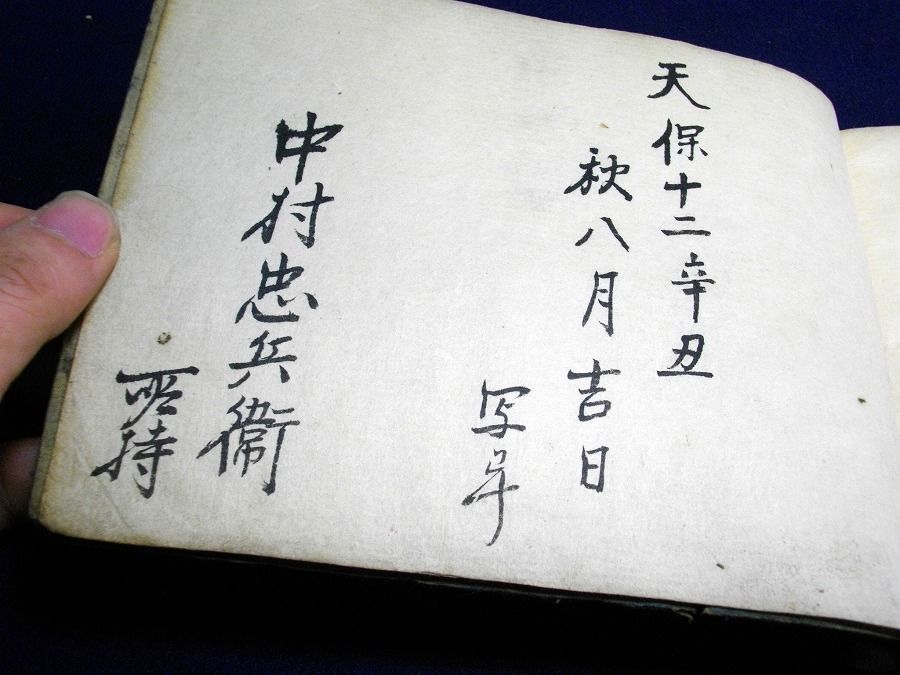 天保十二辛丑
秋八月吉日
写早
中村忠兵衛
所持